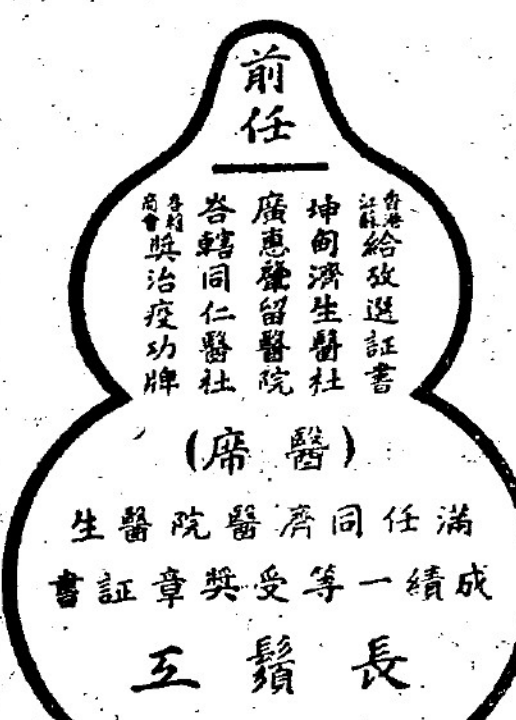 前任
香港江蘇給攷選証書
坤甸濟生醫社
廣惠肇留醫院
峇轄同仁醫社
商會獎治疫功牌
(醫席)
滿任同濟醫院醫生
成績一等受獎章証書
長鬚